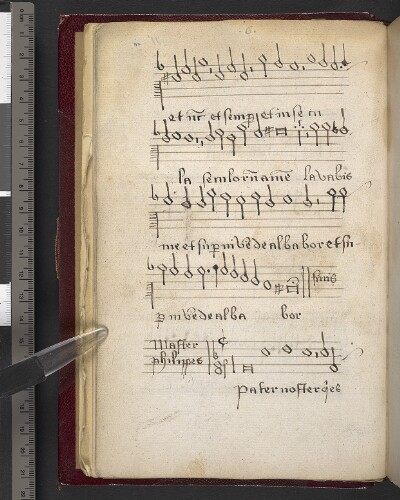 6
et nūc et semp et in se cu
la seculorū amē lavabis
me et sup nivē de alba bor et su
finis
p nivē de alba bor
Master
philippes
Pater noster qi es